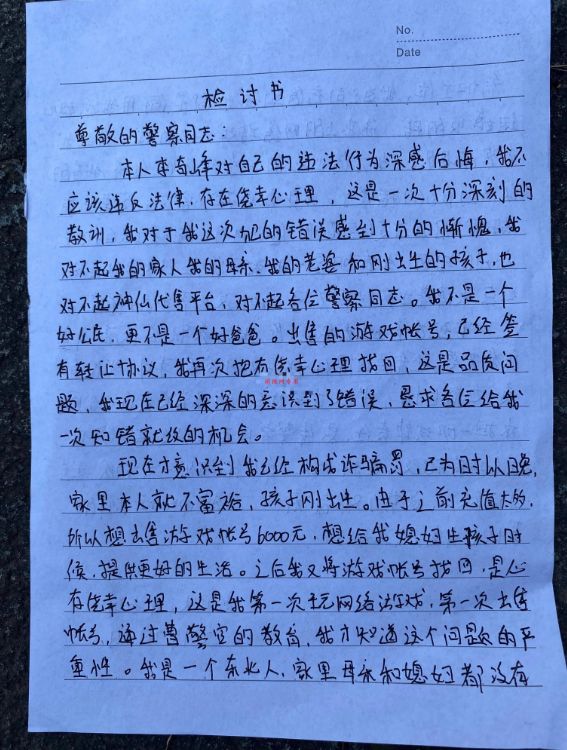 No.
Date
检讨书
尊敬的警察同志:
本人李奇峰对自己的违法行为深感后悔,我不
应该违反法律,存在侥幸心理,这是一次十分深刻的
教训,我对于我这次犯的错误感到十分的惭愧,我
对不起我的家人我的母亲,我的老婆和刚出生的孩子,也
对不起神仙代售平台,对不起各位警察同志。我不是一个
好公民,更不是一个好爸爸。出售的游戏帐号,已经签
有转让协议,我再次抱有侥幸心理找回,这是品质问
题,我现在已经深深的意识到了错误,恳求各位给我
一次知错就改的机会。
现在才意识到我已经构成诈骗罪,已为时以晚,
家里本人就不富裕,孩子刚出生。由于之前充值太多,
所以想出售游戏帐号6000元,想给我媳妇生孩子时
候,提供更好的生活。之后我又将游戏帐号找回,是心
存侥幸心理,这是我第一次玩网络游戏,第一次出售
帐号,通过曹警官的教育,我才知道这个问题的严
重性。我是一个东北人,家里母亲和媳妇都没有